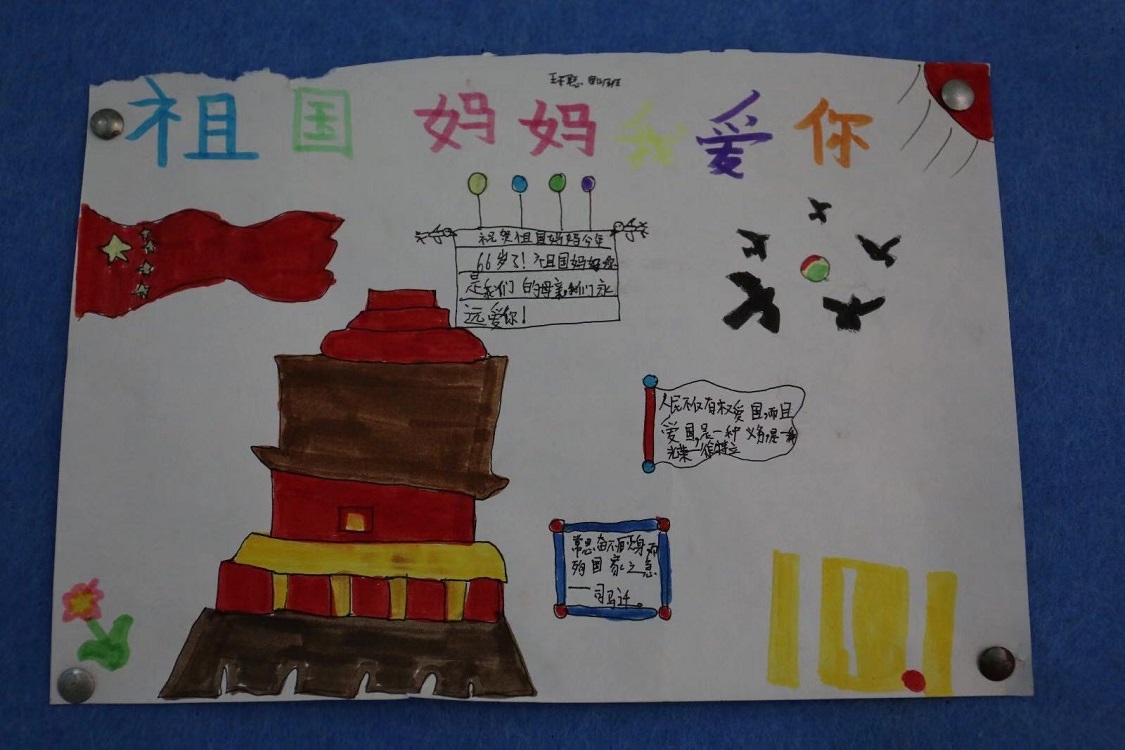 祖国妈妈我爱你
祝贺祖国妈妈今年
66岁了!祖国妈妈你
是我们的母亲,我们永
远爱你!
人民不仅有权爱国,而且
爱国是一种义务,是一种
光荣
常思奋不顾身而
殉国家之急
——司马迁。